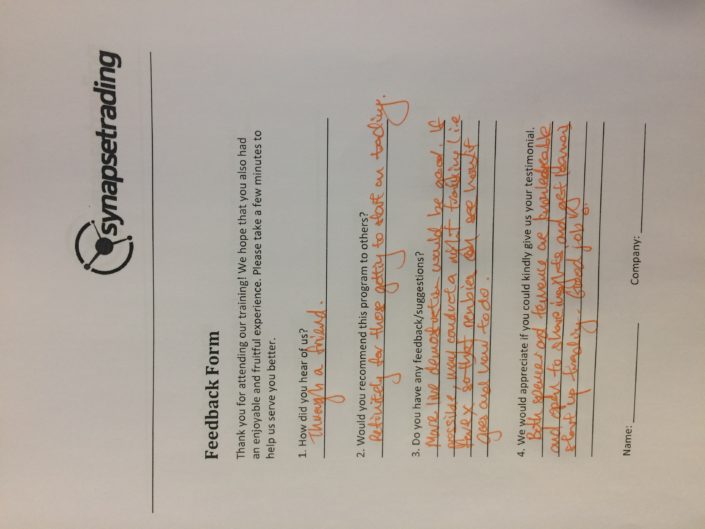 synapsetrading
Feedback Form
Thank you for attending our training! We hope that you also had
an enjoyable and fruitful experience. Please take a few minutes to
help us serve you better.
1. How did you hear of us?
Through a friend.
2. Would you recommend this program to others?
Definitely for those getting to start on trading.
3. Do you have any feedback/suggestions?
More live demonstration would be good. If
possible, may conduct a night training (ie
forex so that newbies can see how it
goes and how to do.
4. We would appreciate if you could kindly give us your testimonial.
Both spencer and terrence are knowledgeable
and open to share insights and get
start up trading. Good job
Name: Company: